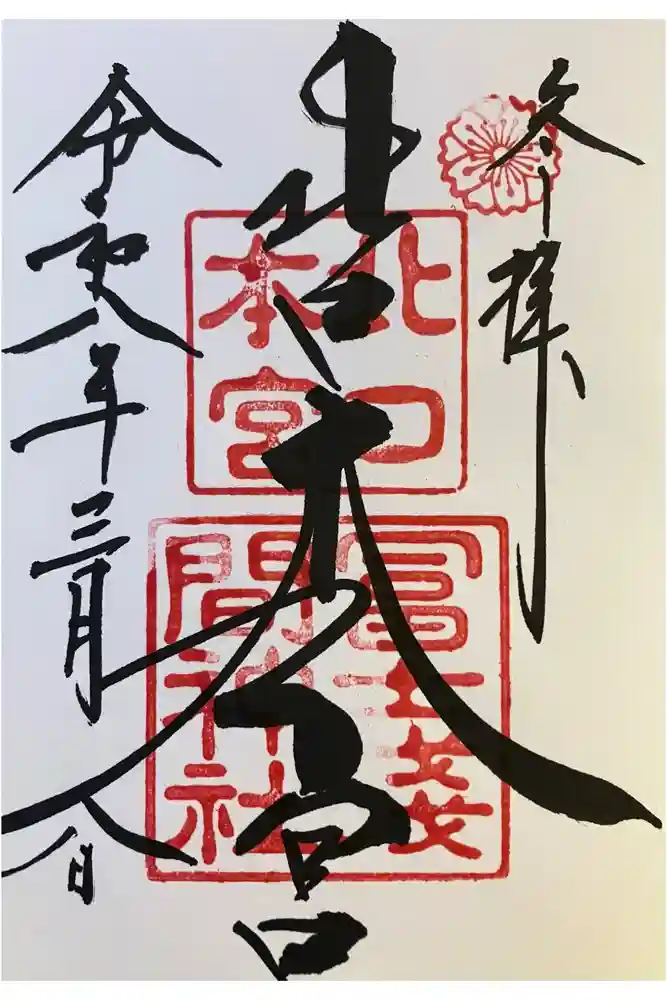 参拝
北口本宮
令和八年三月八日
北口
本宮
冨士淺
間神社